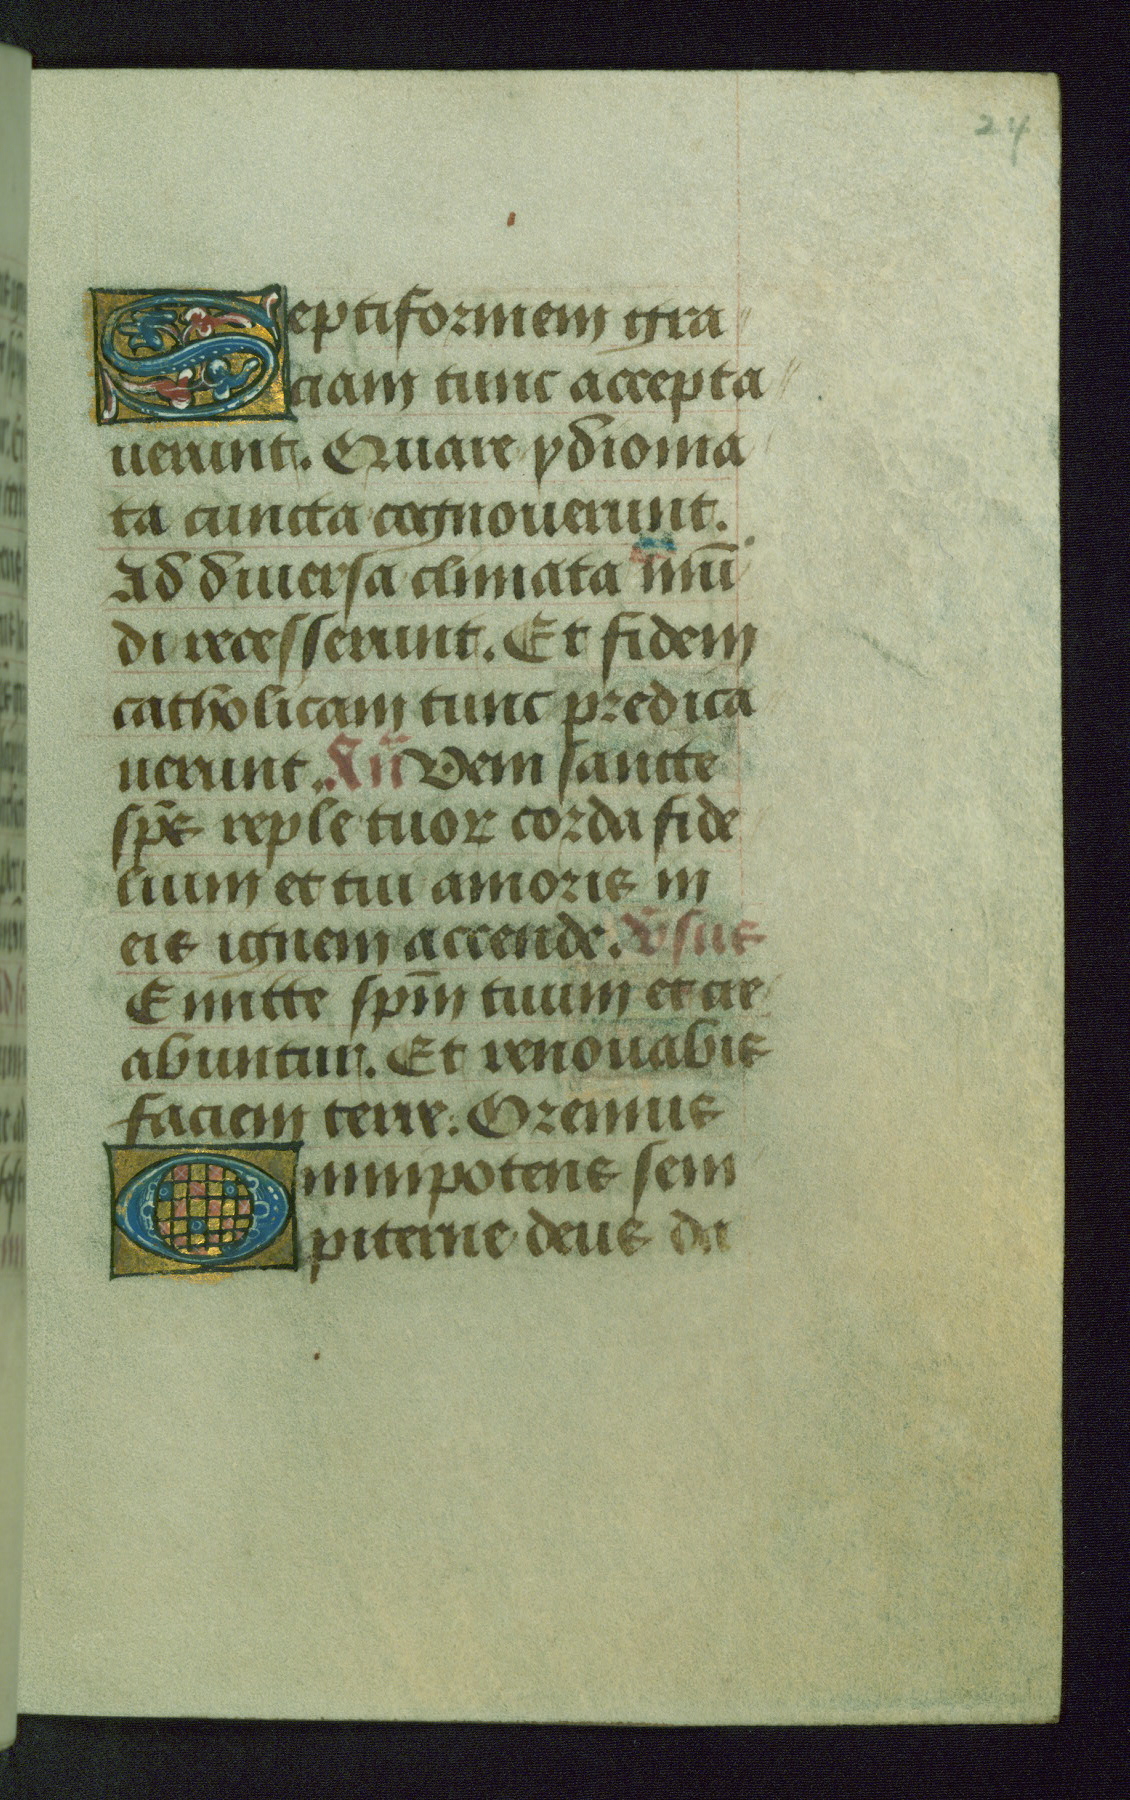 24
Septiformem gra
ciam tunc accepta
uerunt. Quare ydioma
ta cuncta cognouerunt.
Ad diuersa climata mūi
di recesserunt. Et fidem
catholicam tunc predica
uerunt. Añ Veni sancte
sp̄s reple tuoꝝ corda fide
lium et tui amoris in
eis ignem accende. V̄sus
Emitte sp̄m tuum et cre
abuntur. Et renouabis
faciem terre. Oremus
Omnipotens sem
piterne deus da